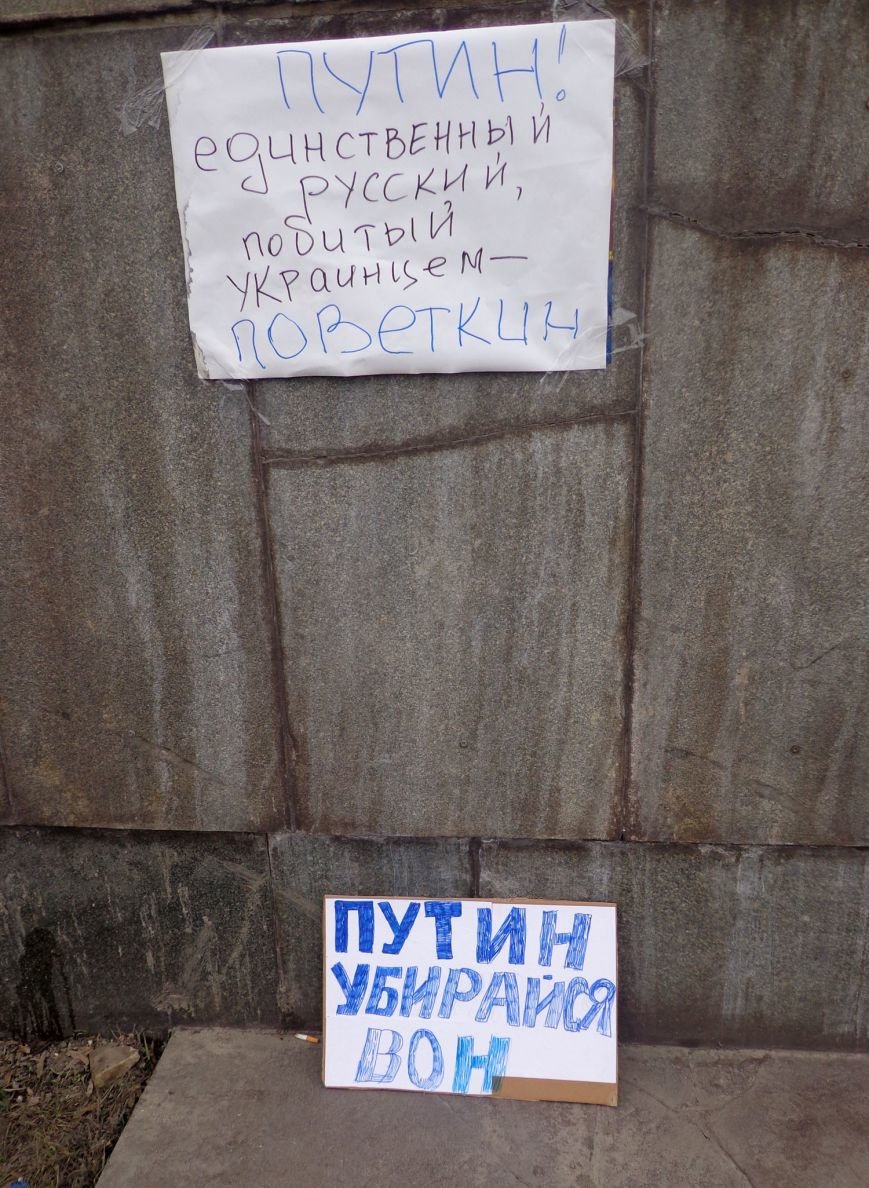 ПУТИН!
единственный
русский,
побитый
украинцем —
поветкин
ПУТИН
УБИРАЙСЯ
ВОН